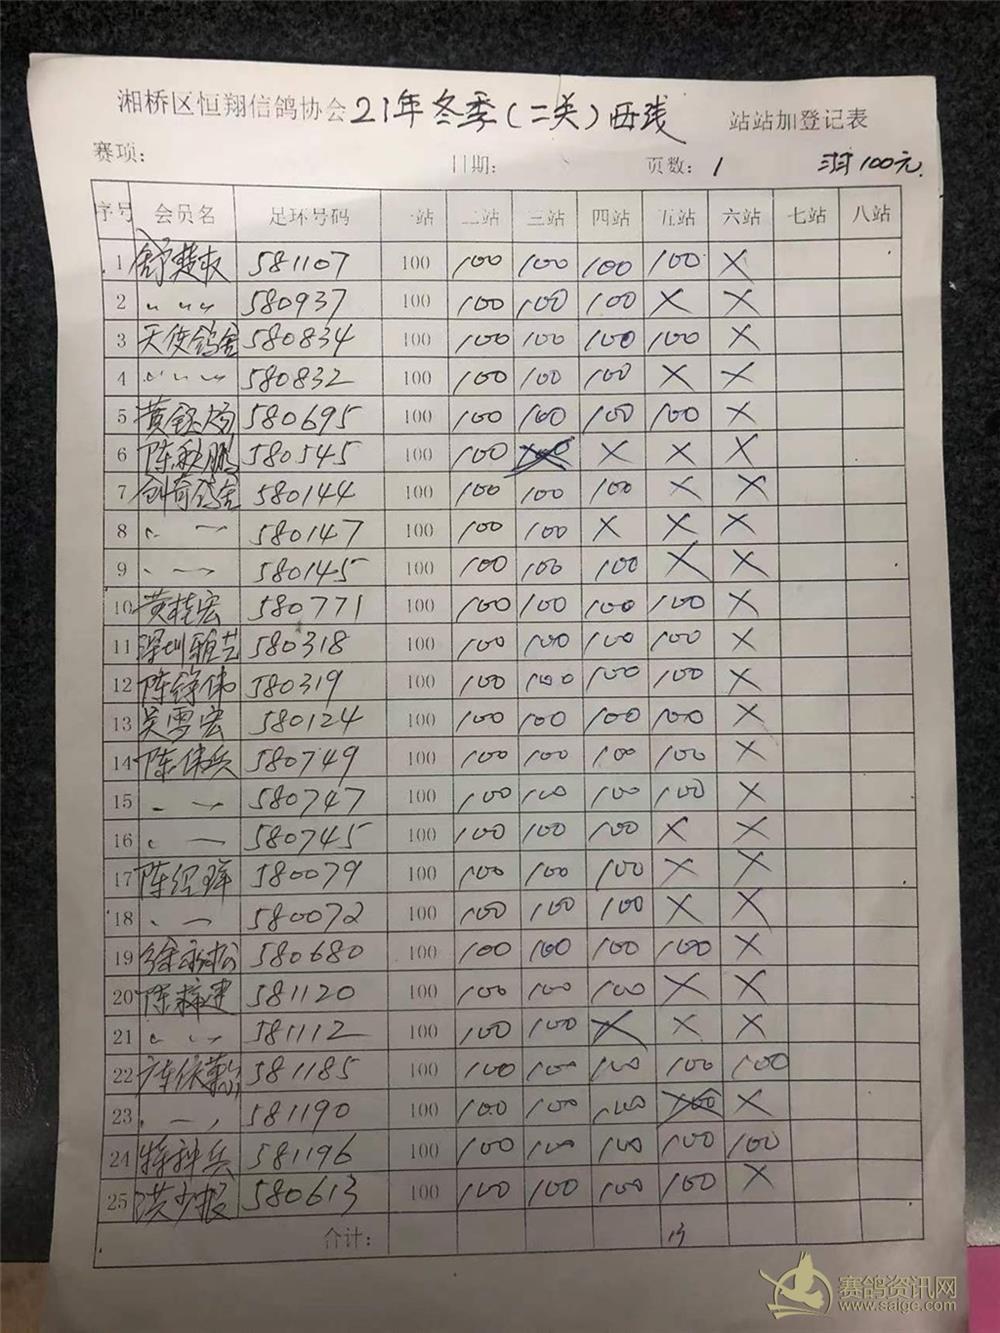 湘桥区恒翔信鸽协会21年冬季(二关)西线 站站加登记表
赛项: 日期: 页数: 1 100元
序号 会员名 足环号码 一站 二站 三站 四站 五站 六站 七站 八站
1 舒楚权 581107 100 100 100 100 100 ×
2 〃 〃 〃 580937 100 100 100 100 × ×
3 天使鸽舍 580834 100 100 100 100 100 ×
4 〃 〃 〃 580832 100 100 100 100 × ×
5 黄 580695 100 100 100 100 100 ×
6 陈秋鹏 580545 100 100 × × × ×
7 创奇鸽舍 580144 100 100 100 100 × ×
8 〃 — 580147 100 100 100 × × ×
9 〃 — 580145 100 100 100 100 × ×
10 黄桂宏 580771 100 100 100 100 100 ×
11 深圳雅艺 580318 100 100 100 100 100 ×
12 陈锦伟 580319 100 100 100 100 100 ×
13 吴雪宏 580124 100 100 100 100 100 ×
14 陈伟兵 580749 100 100 100 100 100 ×
15 〃 — 580747 100 100 100 100 100 ×
16 〃 — 580745 100 100 100 100 × ×
17 陈 580079 100 100 100 100 × ×
18 〃 — 580072 100 100 100 100 × ×
19 徐永松 580680 100 100 100 100 100 ×
20 陈 581120 100 100 100 100 × ×
21 〃 〃 581112 100 100 100 × × ×
22 581185 100 100 100 100 100 100
23 〃 — 581190 100 100 100 100 100 ×
24 特种兵 581196 100 100 100 100 100 100
25 洪少 580613 100 100 100 100 100 ×
合计: 13
赛鸽资讯网
www.saige.com